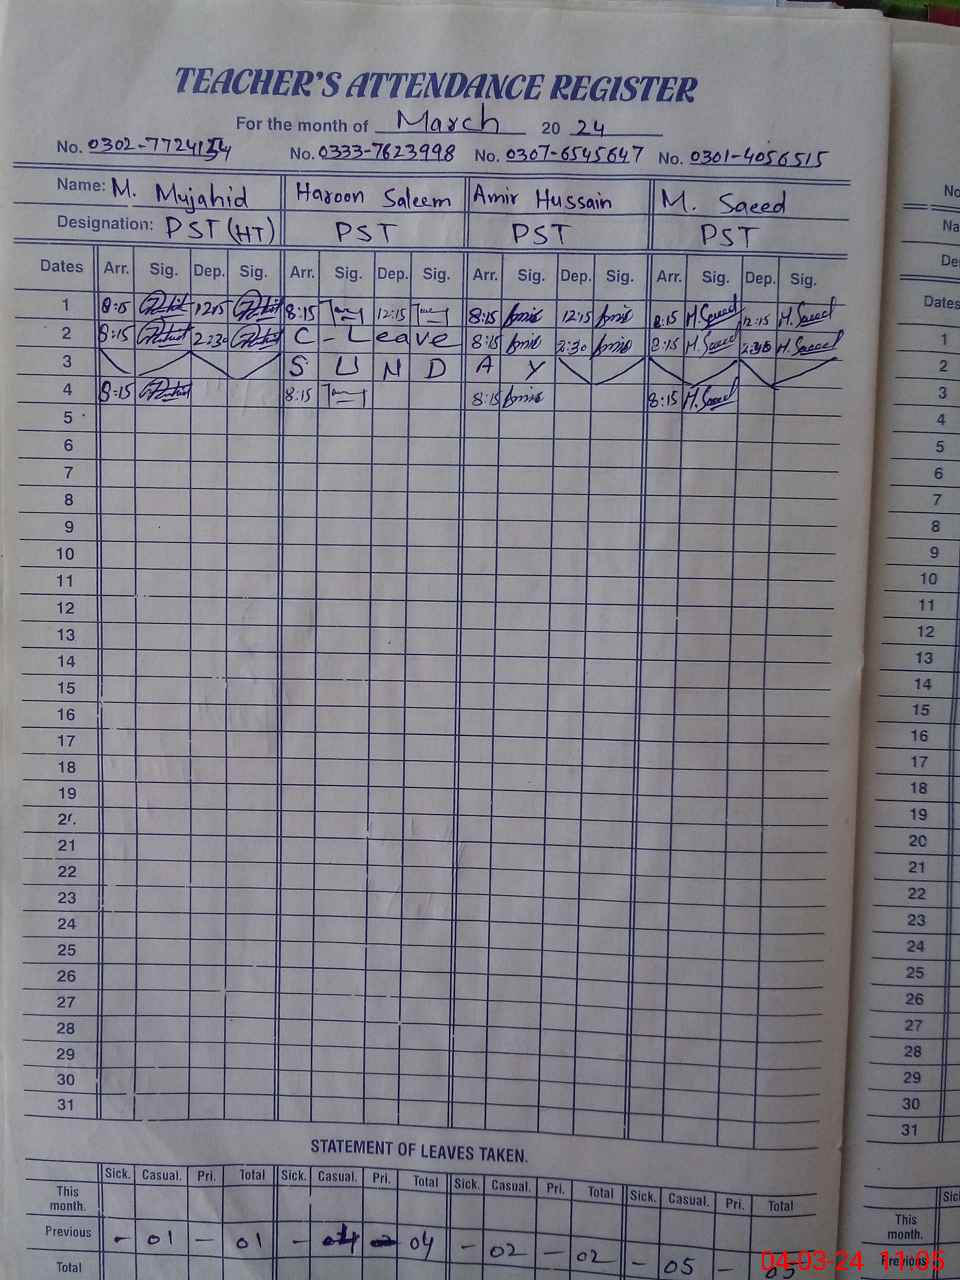 TEACHER'S ATTENDANCE REGISTER
For the month of March 20 24
No. 0302-7724154 No. 0333-7623998 No. 0307-6545647 No. 0301-4056515
Name: M. Mujahid Haroon Saleem Amir Hussain M. Saeed
Designation: PST (HT) PST PST PST
Dates Arr. Sig. Dep. Sig. Arr. Sig. Dep. Sig. Arr. Sig. Dep. Sig. Arr. Sig. Dep. Sig.
1 8:15 12:15 8:15 12:15 8:15 Amir 12:15 Amir 8:15 M.Saeed 12:15 M.Saeed
2 8:15 2:30 C-Leave 8:15 Amir 2:30 Amir 8:15 M.Saeed 2:30 M.Saeed
3 S U N D A Y
4 8:15 8:15 8:15 Amir 8:15 M.Saeed
5
6
7
8
9
10
11
12
13
14
15
16
17
18
19
2
21
22
23
24
25
26
27
28
29
30
31
STATEMENT OF LEAVES TAKEN.
Sick. Casual. Pri. Total Sick. Casual. Pri. Total Sick. Casual. Pri. Total Sick. Casual. Pri. Total
This month.
Previous - 01 - 01 - 04 04 - 02 - 02 - 05 - 05
Total
No
Na
De
Dates
1
2
3
4
5
6
7
8
9
10
11
12
13
14
15
16
17
18
19
20
21
22
23
24
25
26
27
28
29
30
31
Sic
This month.
Previous
04-03-24 11:05